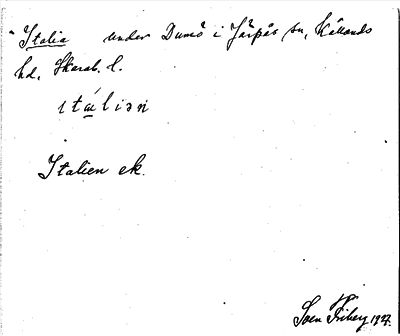 Italia under Dumö i Järpås sn, Kållands
hd, Skarab. l.
ıtálıən
Italien ek.
Sven Friberg 1927.